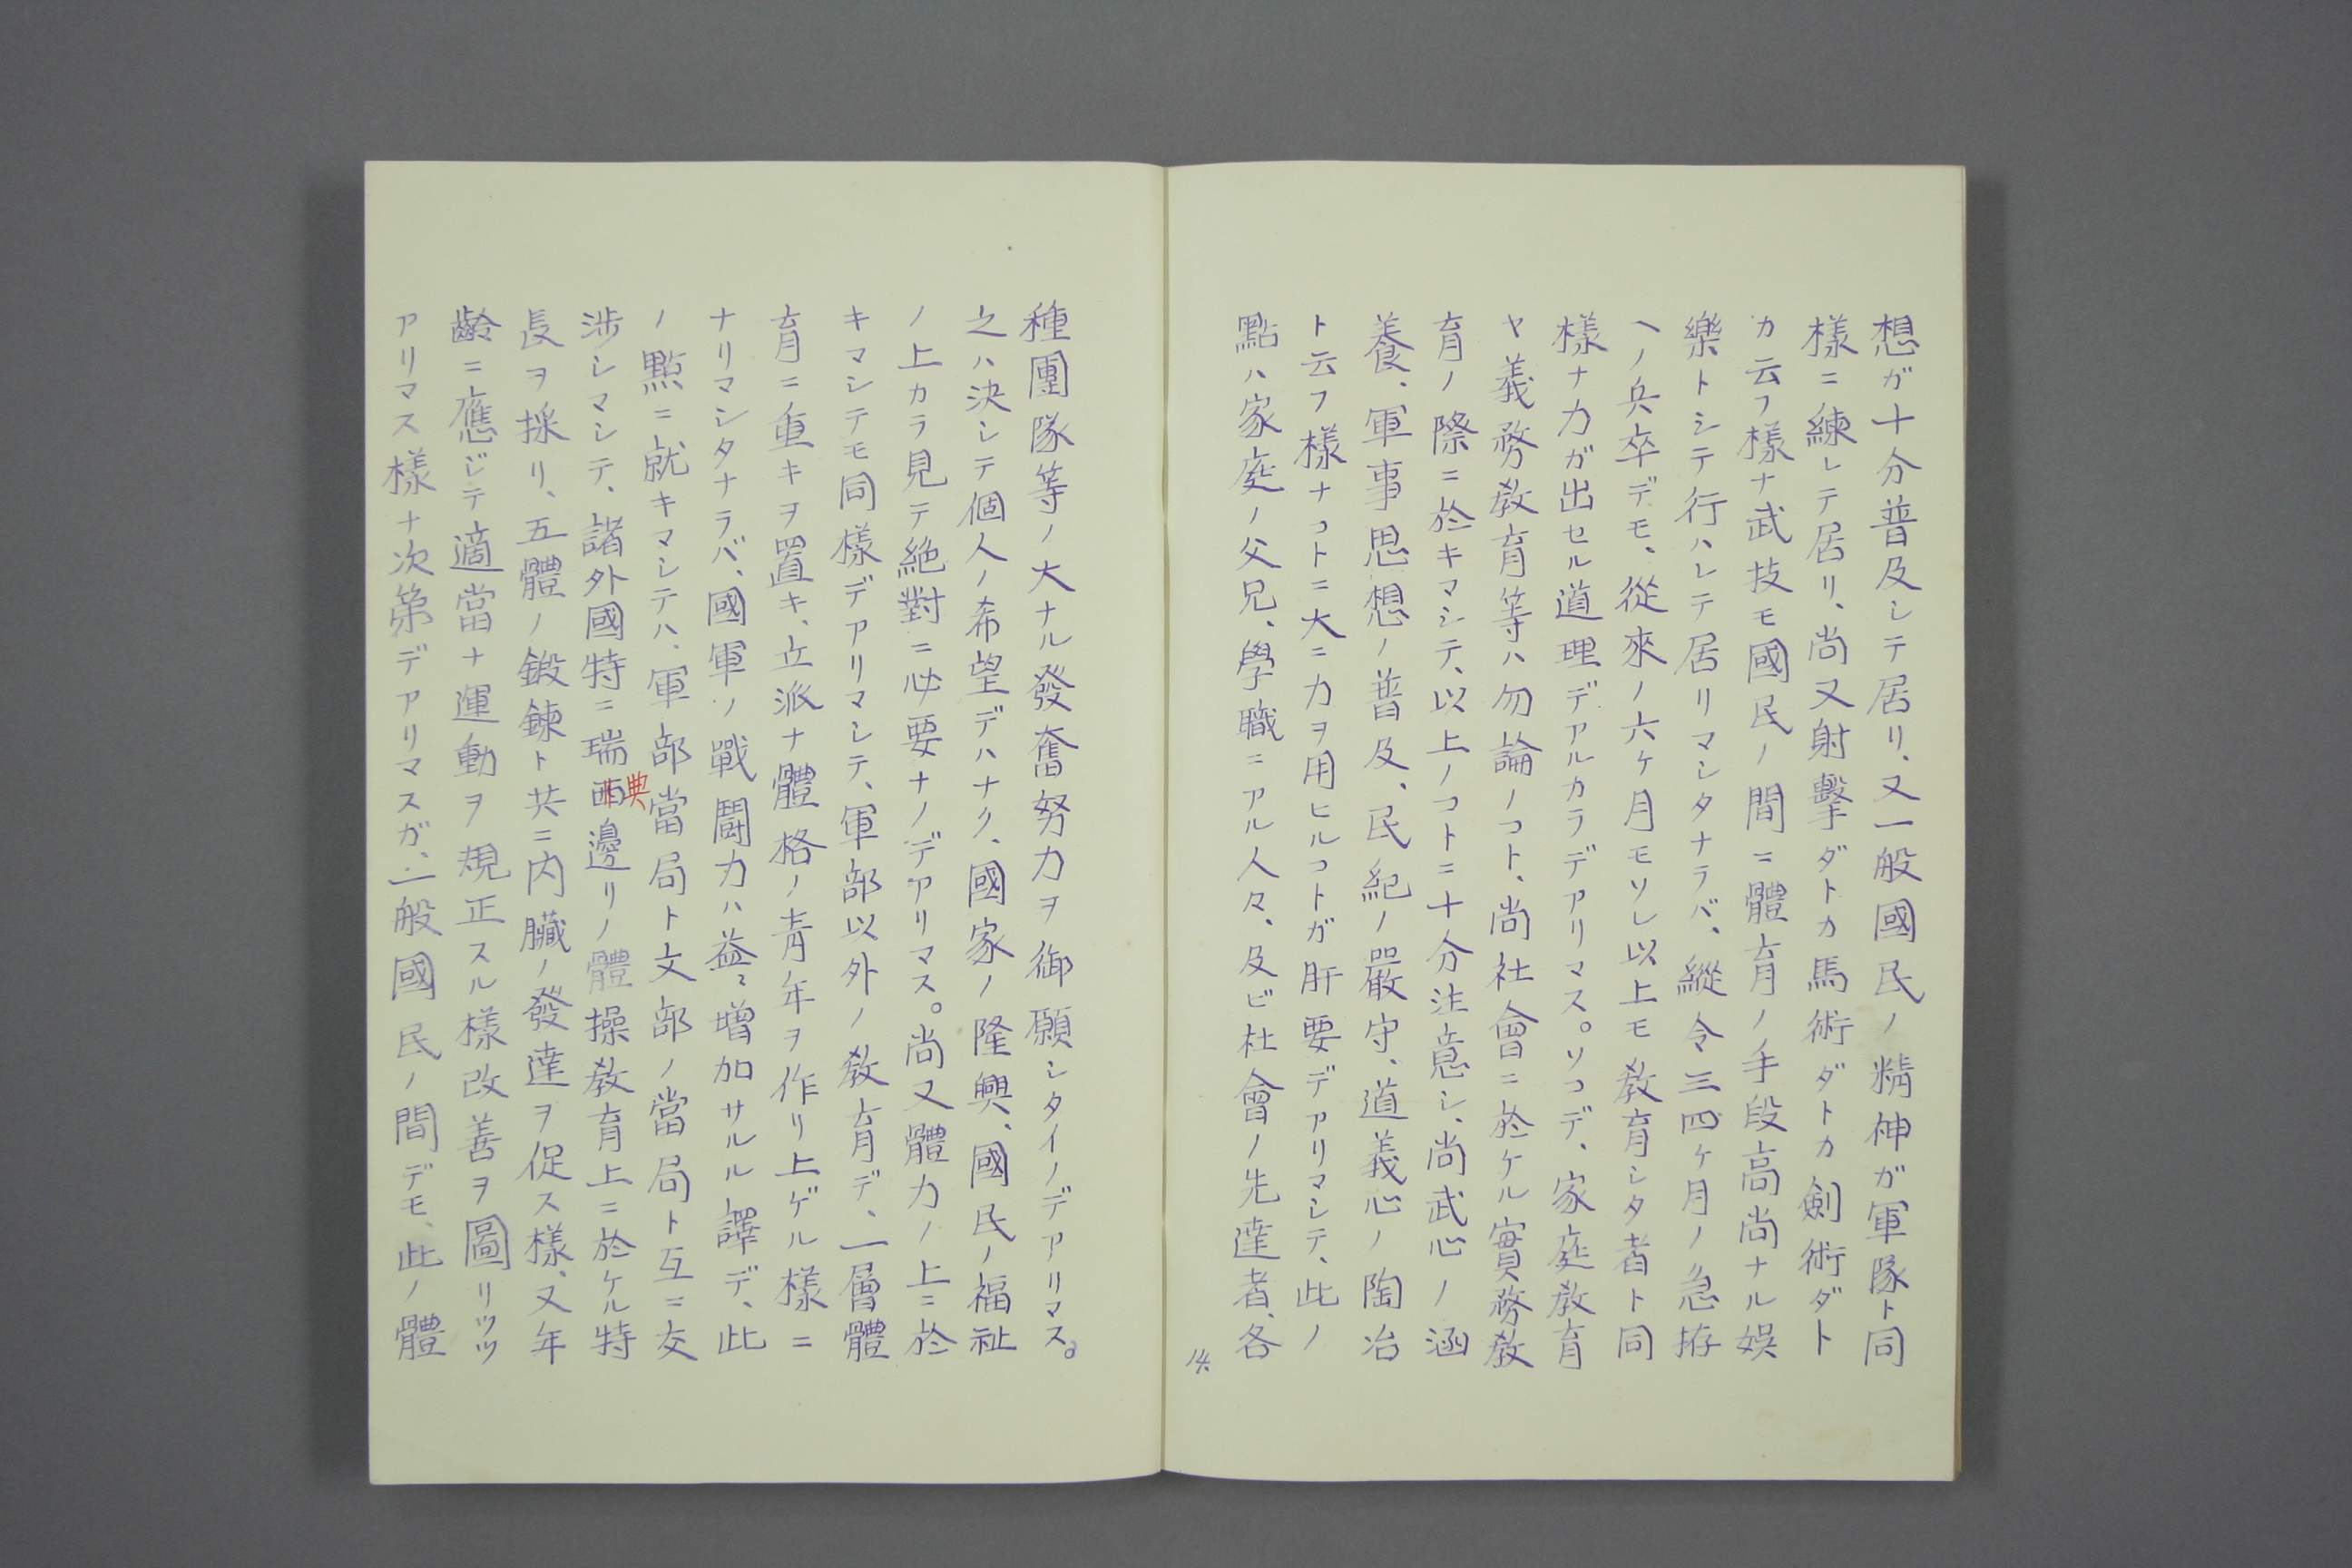 想ガ十分普及シテ居リ、又一般國民ノ精神ガ軍隊ト同
様ニ練レテ居リ、尚又射擊ダトカ馬術ダトカ劍術ダト
カ云フ様ナ武技モ國民ノ間ニ體育ノ手段高尚ナル娯
樂トシテ行ハレテ居リマシタナラバ、縱令三四ケ月ノ急拵
ヘノ兵卒デモ、從來ノ六ケ月モソレ以上モ敎育シタ者ト同
様ナ力ガ出セル道理デアルカラデアリマス。ソコデ、家庭敎育
ヤ義務敎育等ハ勿論ノコト、尚社會ニ於ケル實務敎
育ノ際ニ於キマシテ、以上ノコトニ十分注意シ、尚武心ノ涵
養、軍事思想ノ普及、民紀ノ嚴守、道義心ノ陶冶
ト云フ様ナコトニ大ニ力ヲ用ヒルコトガ肝要デアリマシテ、此ノ
點ハ家庭ノ父兄、學職ニアル人々、及ビ社會ノ先達者、各
14.
種團隊等ノ大ナル發奮努力ヲ御願シタイノデアリマス。
之ハ決シテ個人ノ希望デハナク、國家ノ隆興、國民ノ福祉
ノ上カラ見テ絶對ニ必要ナノデアリマス。尚又體力ノ上ニ於
キマシテモ同様デアリマシテ、軍部以外ノ敎育デ、一層體
育ニ重キヲ置キ、立派ナ體格ノ青年ヲ作リ上ゲル様ニ
ナリマシタナラバ、國軍ノ戰鬪力ハ益々増加サルル譯デ、此
ノ點ニ就キマシテハ、軍部當局ト文部ノ當局ト互ニ交
涉シマシテ、諸外國特ニ瑞西典邊リノ體操敎育上ニ於ケル特
長ヲ採リ、五體ノ鍛鍊ト共ニ内臟ノ發達ヲ促ス様、又年
齡ニ應ジテ適當ナ運動ヲ規正スル様改善ヲ圖リツツ
アリマス様ナ次第デアリマスガ、一般國民ノ間デモ、此ノ體